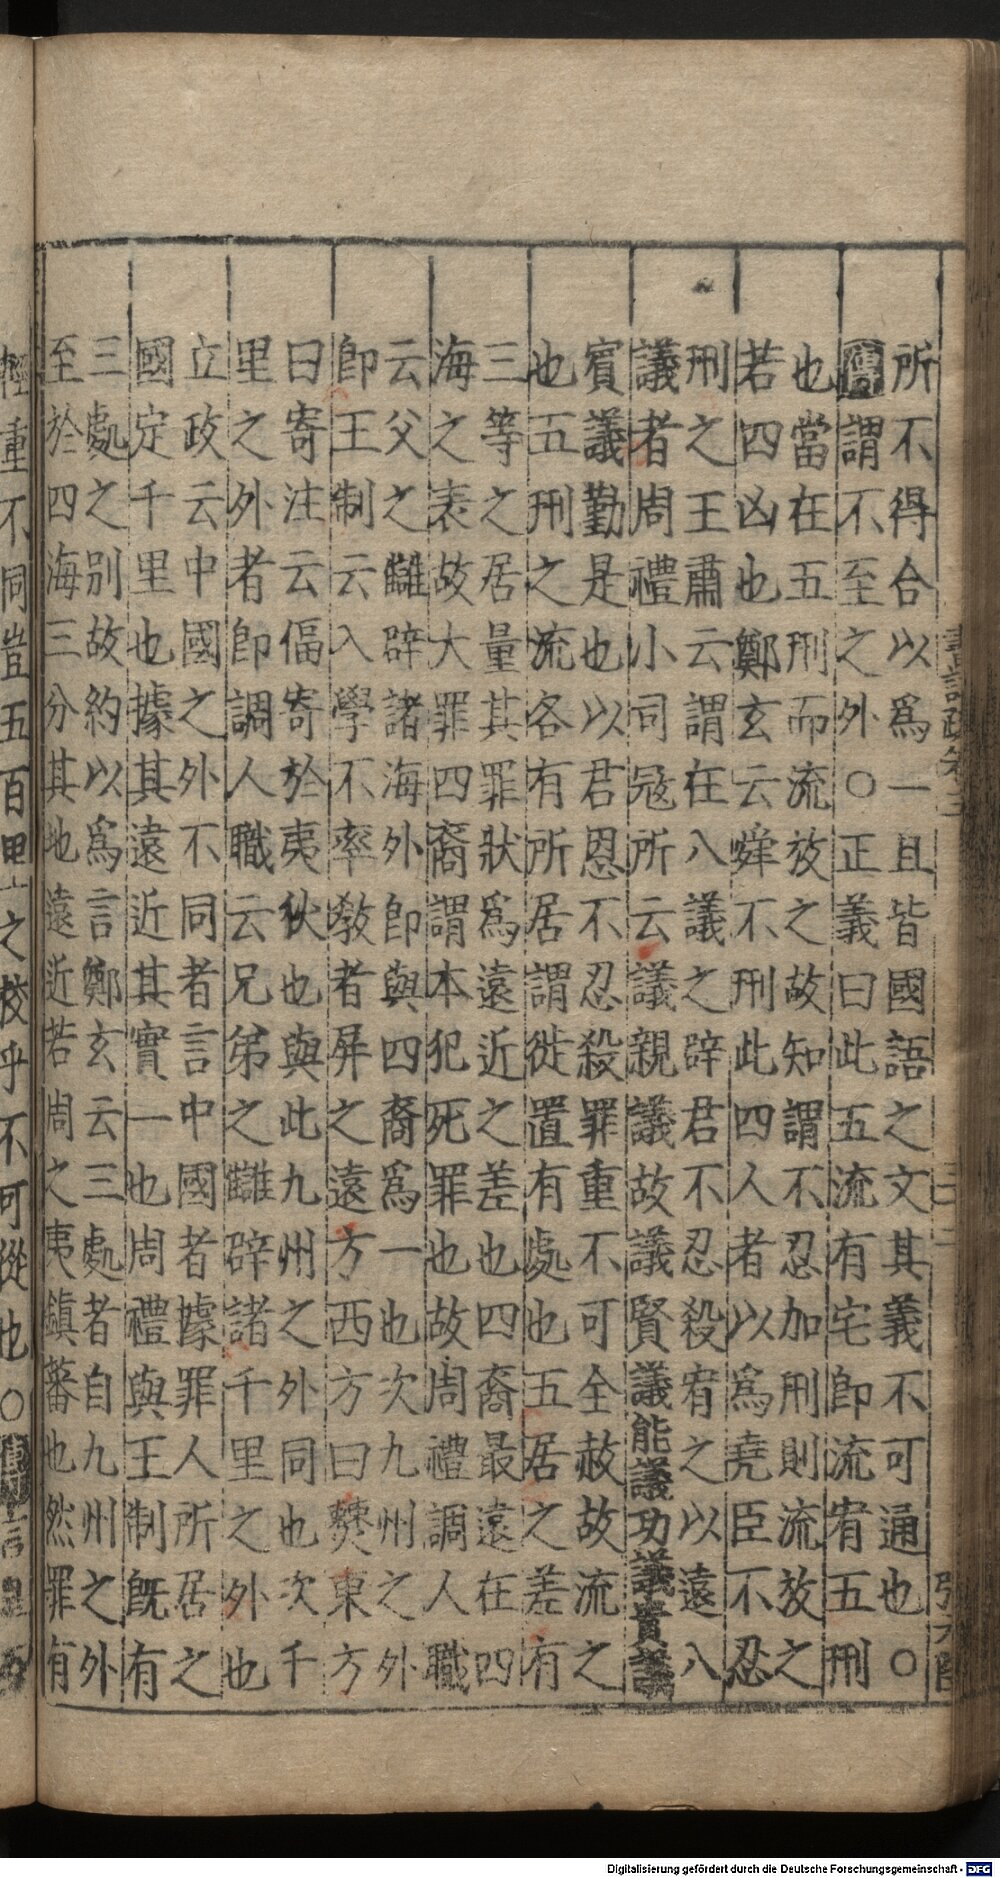 所不得合以爲一且皆國語之文其義不可通也○
傳謂不至之外○正義曰此五流有宅即流宥五刑
也當在五刑而流放之故知謂不忍加刑則流放之
若四凶也鄭玄云舜不刑此四人者以爲堯臣不忍
刑之王肅云謂在八議之辟君不忍殺宥之以遠八
議者周禮小司寇所云議親議故議賢議能議功議貴議
賓議勤是也以君恩不忍殺罪重不可全赦故流之
也五刑之流各有所居謂徙置有處也五居之差有
三等之居量其罪狀爲遠近之差也四裔最遠在四
海之表故大罪四裔謂本犯死罪也故周禮調人職
云父之讎辟諸海外即與四裔爲一也次九州之外
即王制云入學不率教者屏之遠方西方曰僰東方
曰寄注云偪寄於夷狄也與此九州之外同也次千
里之外者即調人職云兄弟之讎辟諸千里之外也
立政云中國之外不同者言中國者據罪人所居之
國定千里也據其遠近其實一也周禮與王制既有
三處之別故約以爲言鄭玄云三處者自九州之外
至於四海三分其地遠近若周之夷鎮蕃也然罪有
輕重不同豈五百里之校乎不可從也○傳言
Digitalisierung gefördert durch die Deutsche Forschungsgemeinschaft - DFG